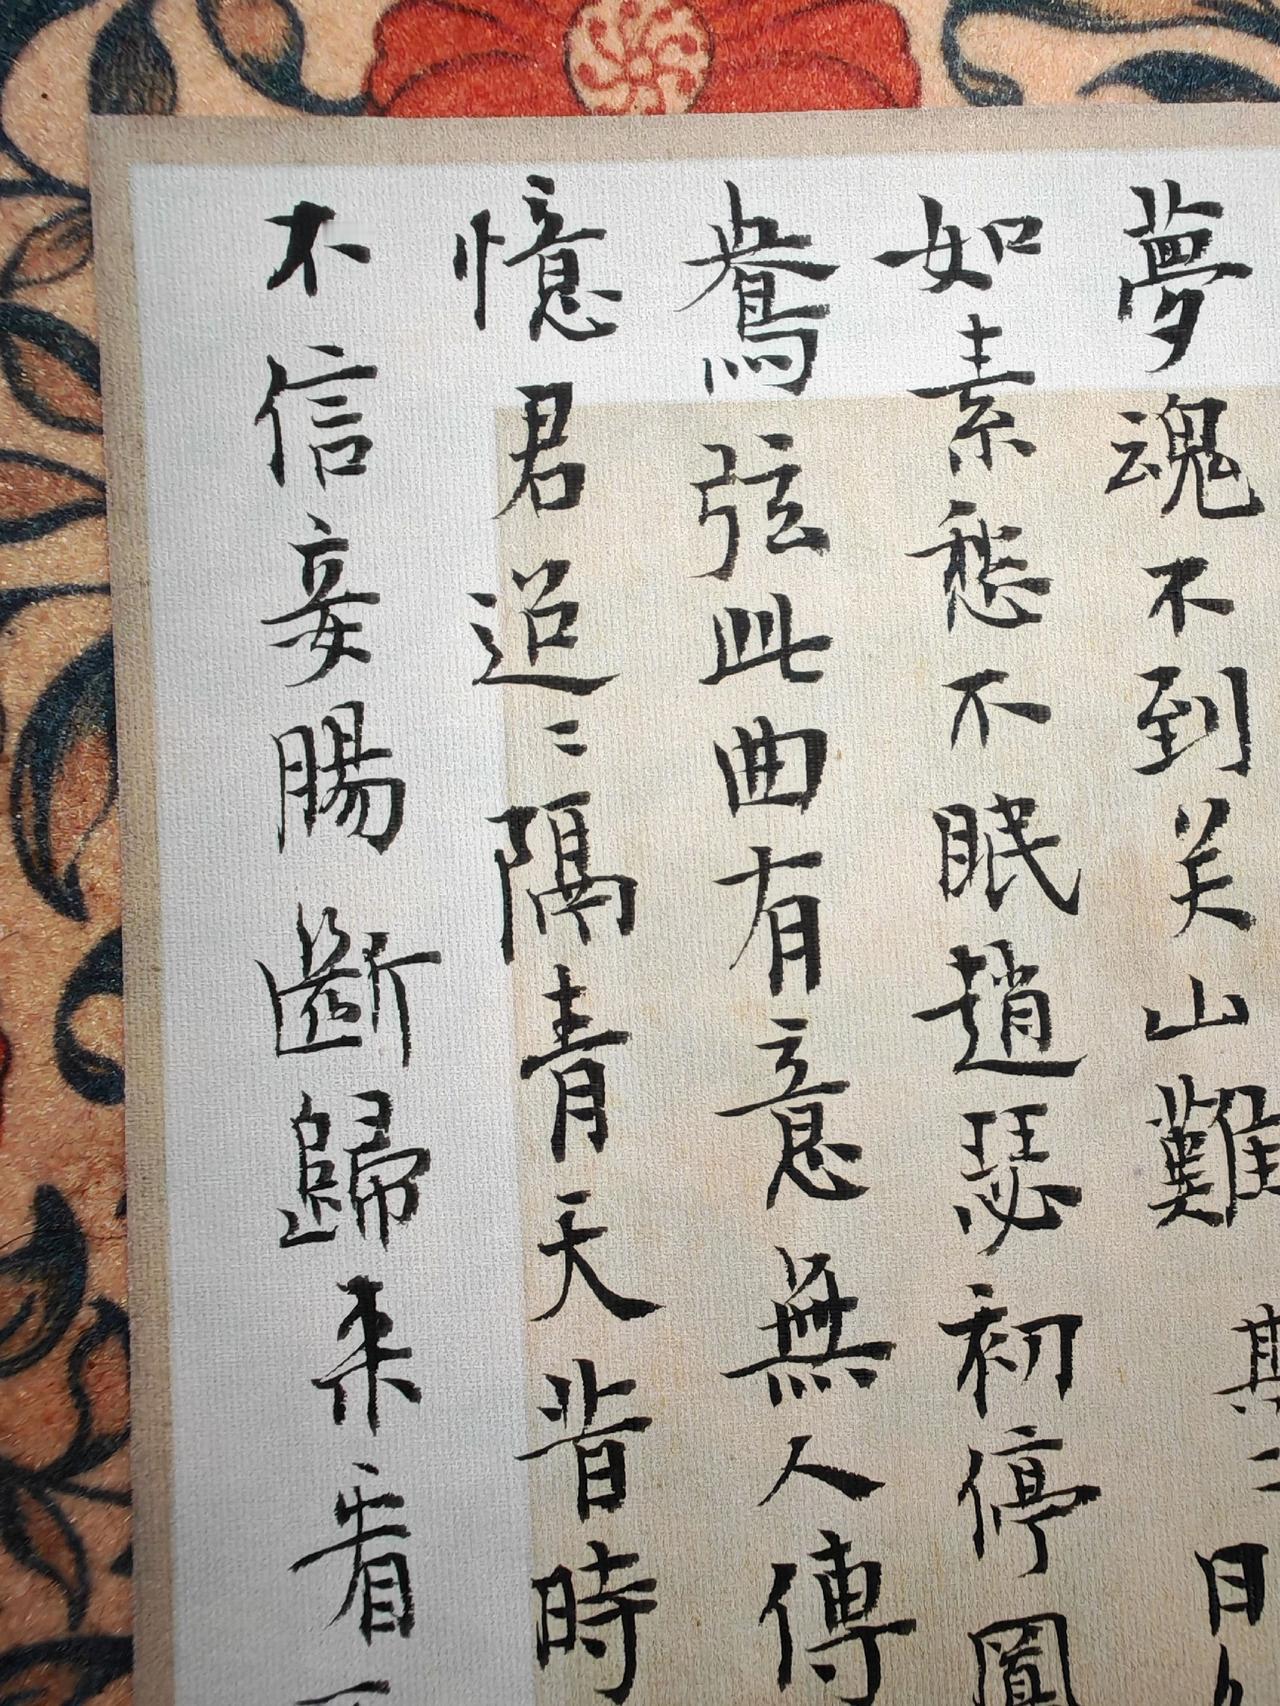 夢魂不到关山難其二日
如素愁不眠趙瑟初停鳳
鴦弦此曲有意無人傳
憶君迢〻隔青天昔時
不信妾腸斷歸来看